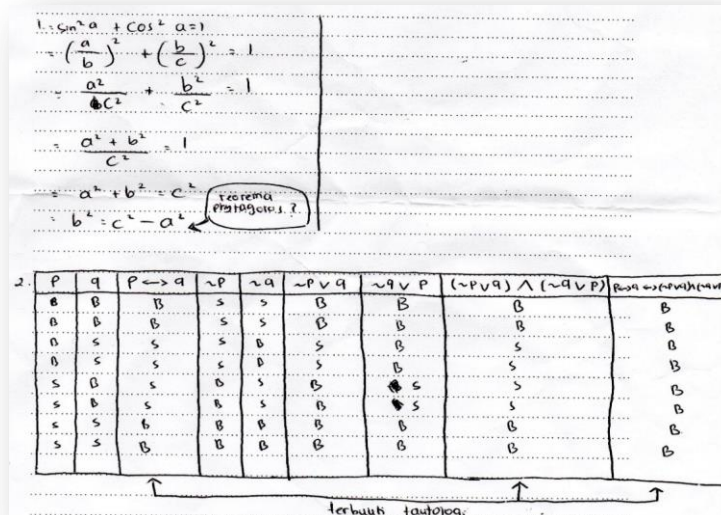 1. = sin² a + cos² a = 1
= (a/b)² + (b/c)² = 1
= a²/c² + b²/c² = 1
= (a² + b²)/c² = 1
= a² + b² = c²
= b² = c² - a²
teorema
phytagoras ?
2. p q p ↔ q ~p ~q ~p ∨ q ~q ∨ p (~p ∨ q) ∧ (~q ∨ p) p↔q ↔ (~p∨q)∧(~q∨p)
B B B S S B B B B
B B B S S B B B B
B S S S B S B S B
B S S S B S B S B
S B S B S B S S B
S B S B S B S S B
S S B B B B B B B
S S B B B B B B B
terbukti tautologi